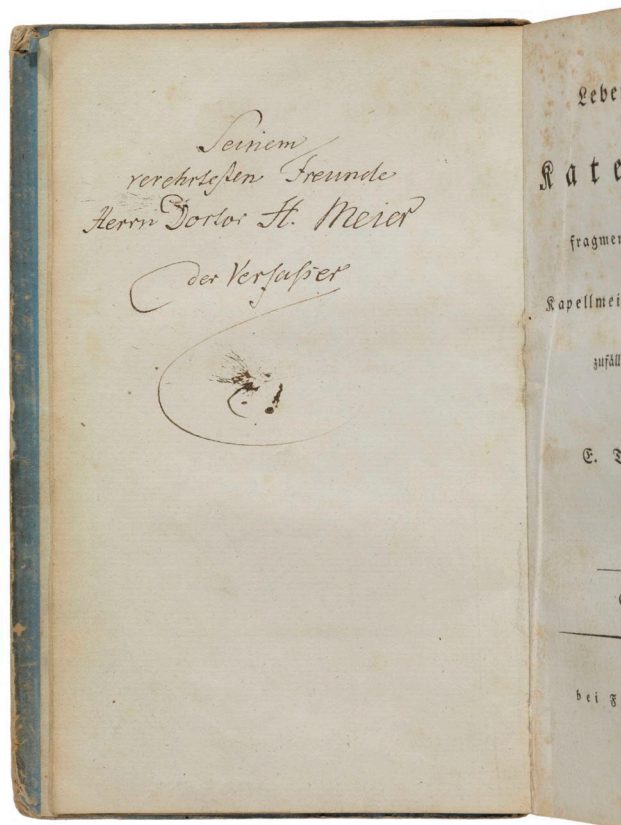 Seinem
verehrtesten Freunde
Herrn Doctor H. Meier
der Verfasser
Lebe
Kate
fragmen
Kapellmei
zufäll
E. T
bei F